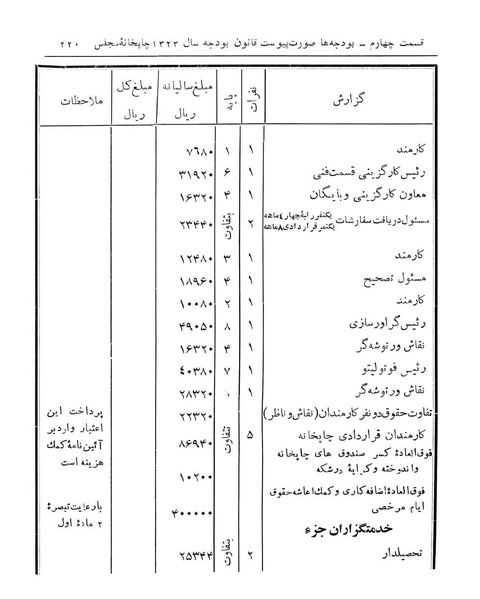 قسمت چهارم ـ بودجه‌ها صورت پیوست قانون بودجه سال ۱۳۲۳ چاپخانهٔ مجلس ۲۲۰
گزارش نفرات پایه مبلغ سالیانه ریال مبلغ کل ریال ملاحظات
کارمند ۱ ۱ ۷۶۸۰
رئیس کارگزینی قسمت فنی ۱ ۶ ۳۱۹۲۰
معاون کارگزینی و بایگان ۱ ۴ ۱۶۳۲۰
مسئول دریافت سفارشات یکنفر پایهٔ چهار ۴ ماهه یکنفر قراردادی ۸ ماهه ۲ متفاوت ۲۳۴۴۰
کارمند ۱ ۳ ۱۲۴۸۰
مسئول تصحیح ۱ ۴ ۱۸۹۶۰
کارمند ۱ ۲ ۱۰۰۸۰
رئیس گراورسازی ۱ ۸ ۴۹۰۵۰
نقاش ورتوشه‌گر ۱ ۴ ۱۶۳۲۰
رئیس فوتولیتو ۱ ۷ ۴۰۳۸۰
نقاش ورتوشه‌گر ۱ ۲۸۳۲۰
تفاوت حقوق دو نفر کارمندان (نقاش و ناظر) ۲۲۳۲۰
کارمندان قراردادی چاپخانه ۵ متفاوت ۸۶۹۴۰
فوق‌العادهٔ کسر صندوق های چاپخانه
واندوخته و کرایهٔ درشکه ۱۰۲۰۰
پرداخت این
اعتبار وارد بر
آئین‌نامهٔ کمک
هزینه است
فوق‌العادهٔ اضافه‌کاری و کمک اعاشه حقوق
ایام مرخصی ۴۰۰۰۰۰
بارعایت تبصرهٔ
۲ مادهٔ اول
خدمتگزاران جزء
تحصیلدار ۲ متفاوت ۲۵۳۴۴